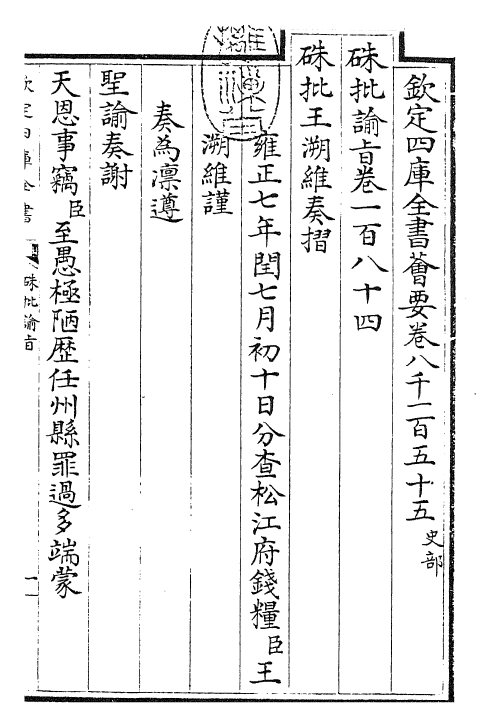 欽定四庫全書薈要卷八千二百五十五 史部
硃批諭旨卷一百八十四
硃批王溯維奏摺
雍正七年閏七月初十日分查松江府錢糧臣王
溯維謹
奏為凛遵
聖諭奏謝
天恩事竊臣至愚極陋歷任州縣罪過多端蒙
硃批諭旨